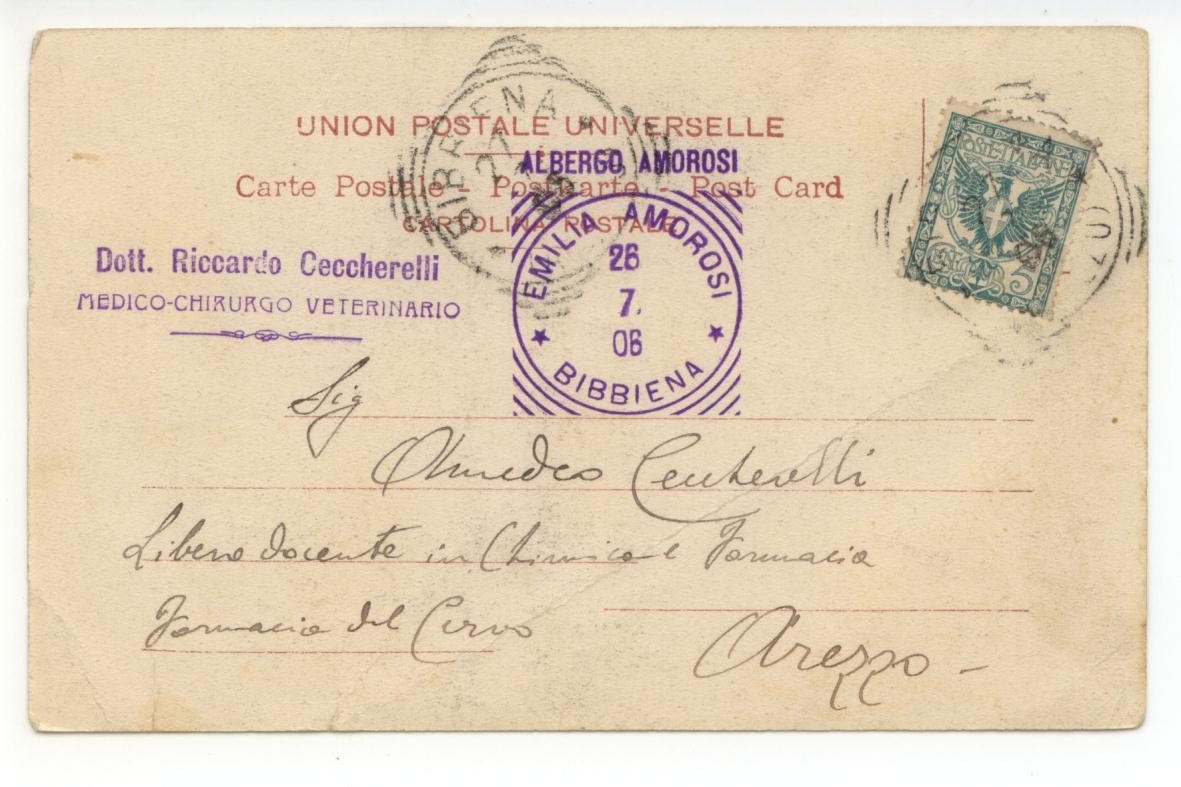 UNION POSTALE UNIVERSELLE
ALBERGO AMOROSI
Carte Postale - Postkarte - Post Card
CARTOLINA POSTALE
BIBBIENA
27
EMILIA AMOROSI
26
7.
06
BIBBIENA
POSTE ITALIANE
5
Dott. Riccardo Ceccherelli
MEDICO-CHIRURGO VETERINARIO
Sig
Olmedeo Ceccherelli
Libero docente in Chimica e Farmacia
Farmacia del Cervo
Arezzo -